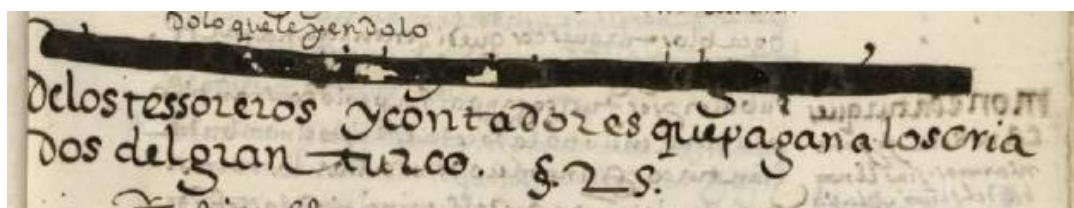 dolo que leyendolo
delos tessoreros y contadores que pagan a los cria
dos del gran turco. §. 25.